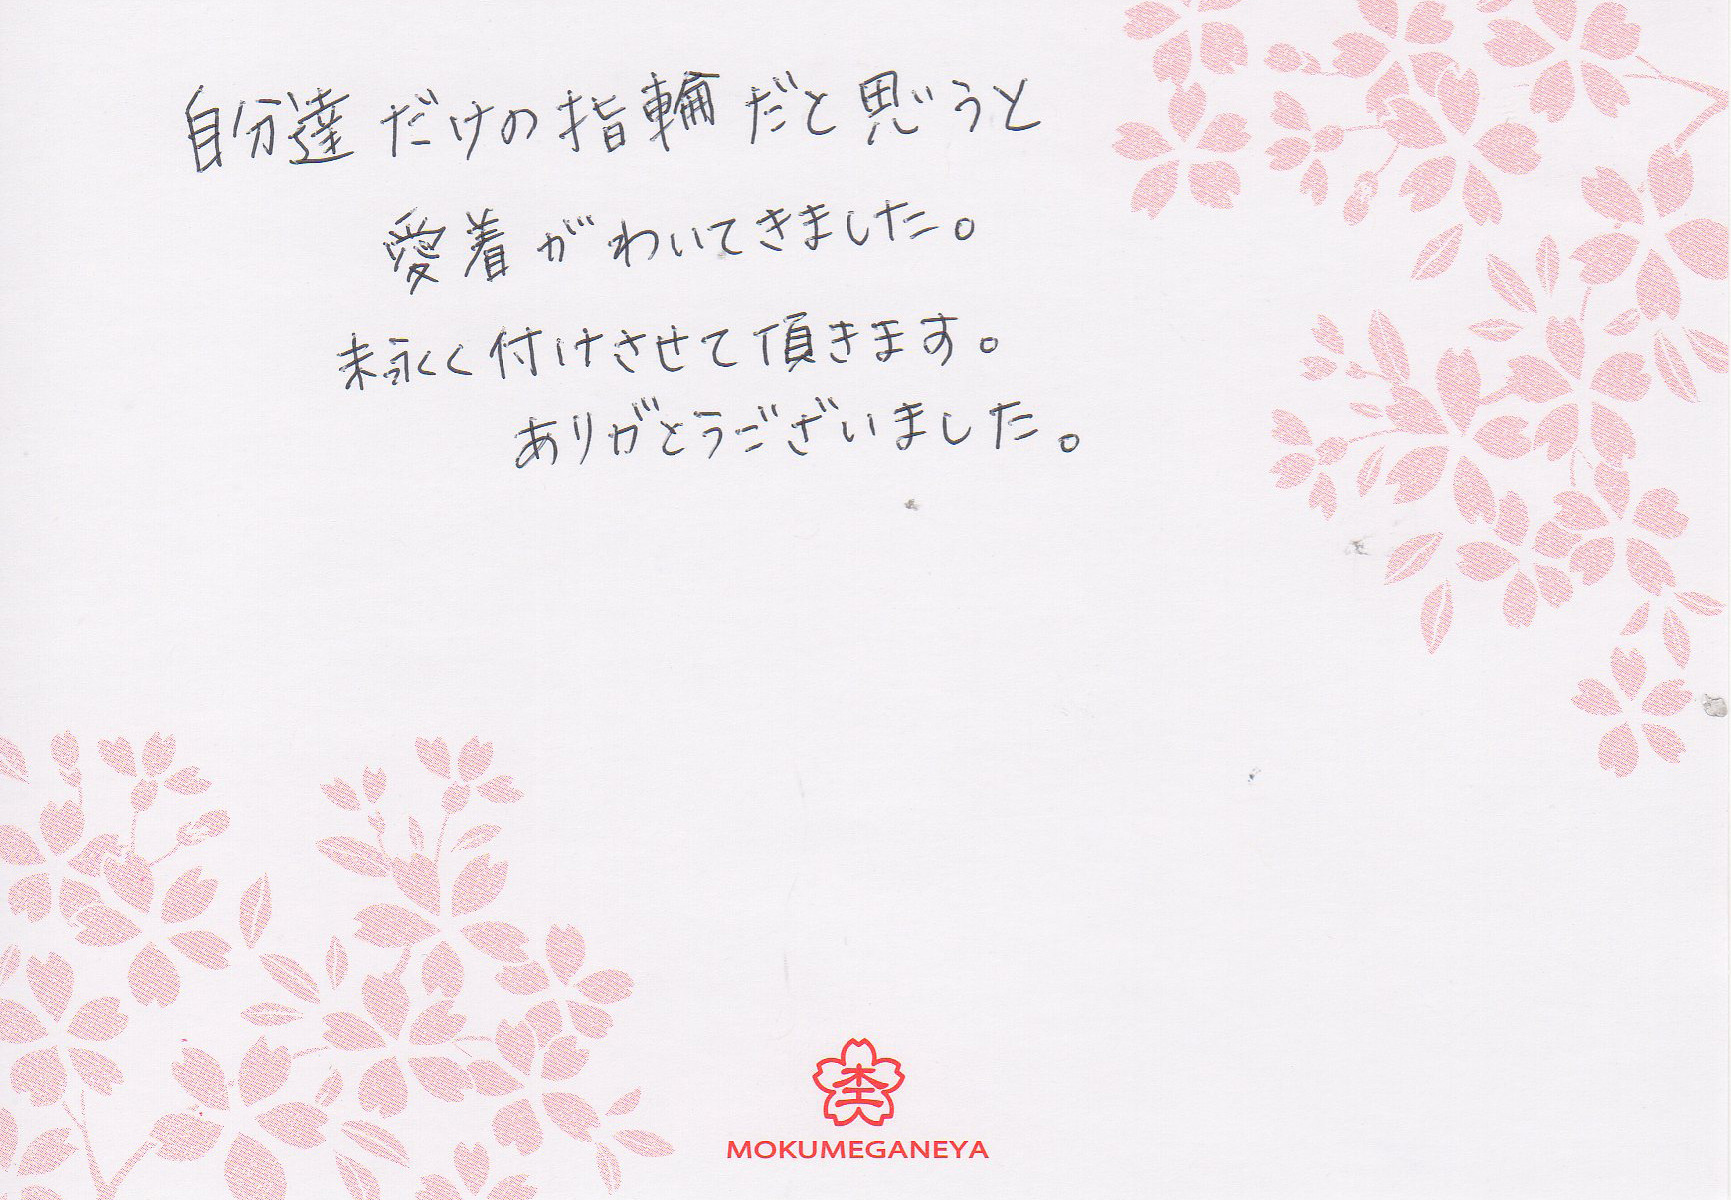 自分達だけの指輪だと思うと
愛着がわいてきました。
末永く付けさせて頂きます。
ありがとうございました。
MOKUMEGANEYA